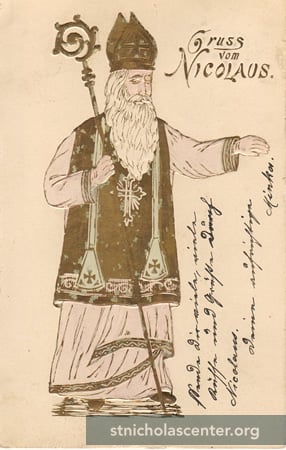 Gruss
vom
NICOLAUS.
Sende dir viele, viele
Küsse und Grüße durch
Nicolaus.
Deine aufrichtige
Minka.
stnicholascenter.org